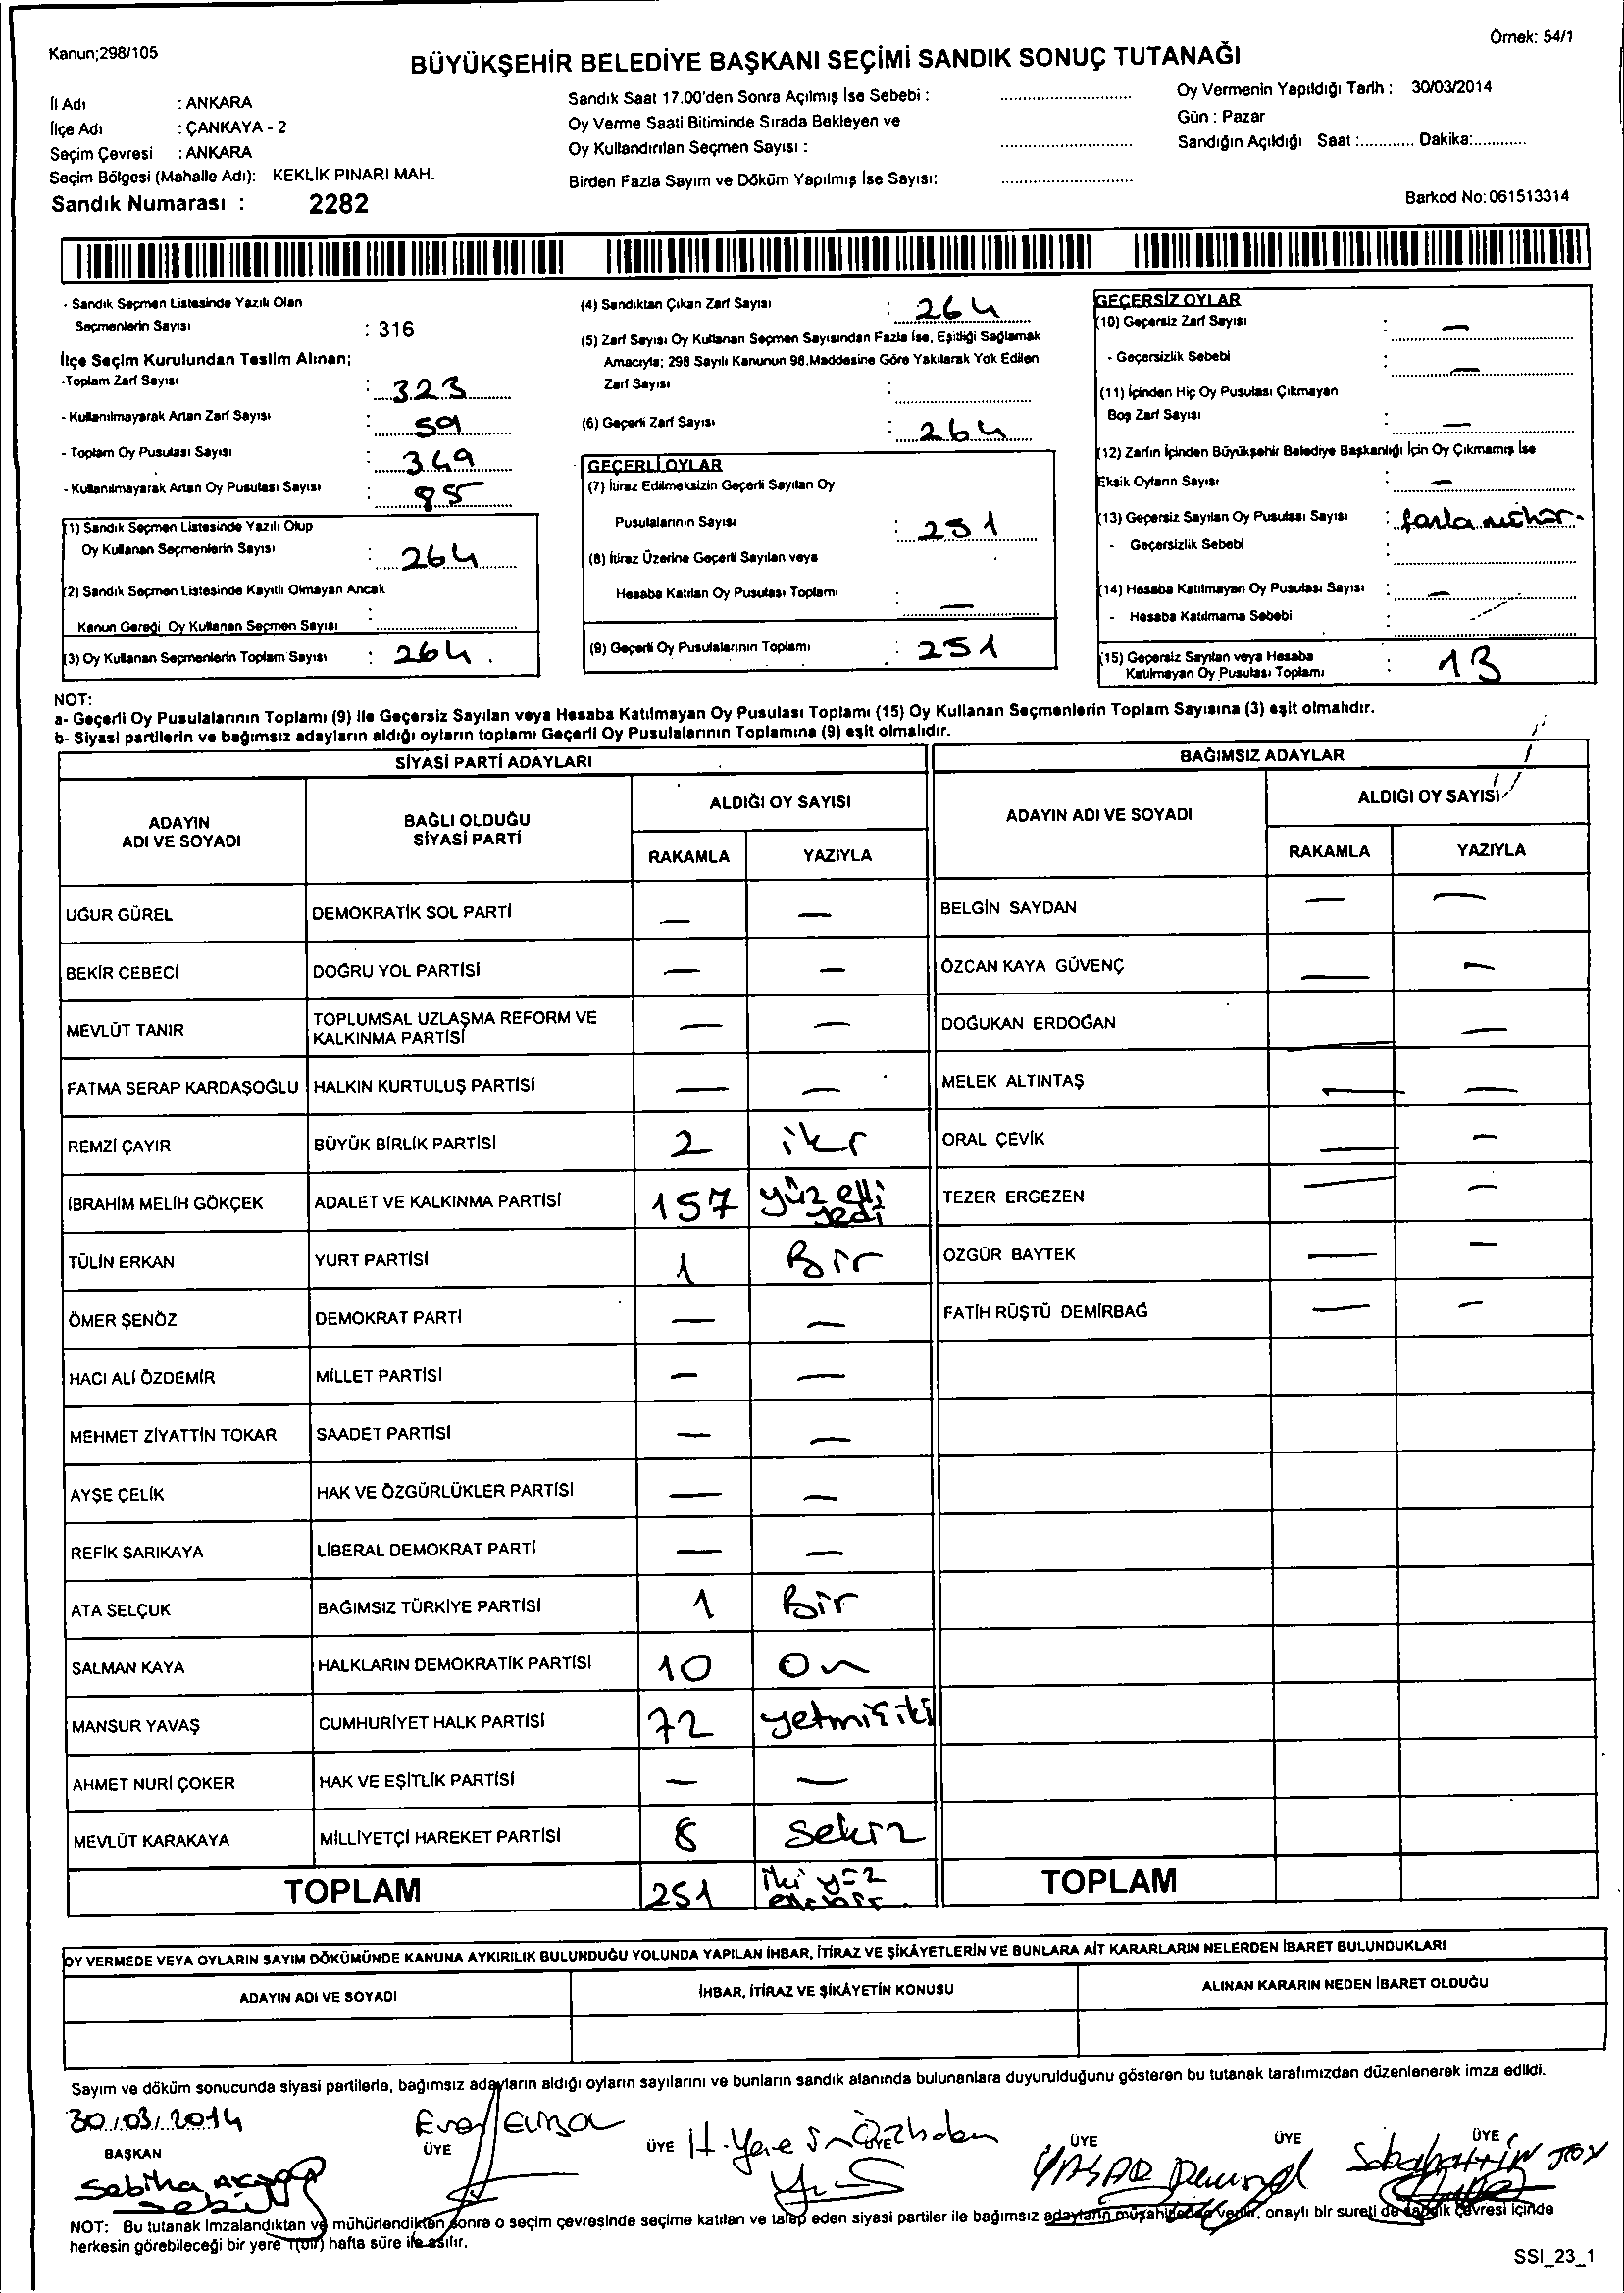 Kanun;298/105
Örnek: 54/1
BÜYÜKŞEHİR BELEDİYE BAŞKANI SEÇİMİ SANDIK SONUÇ TUTANAĞI
İl Adı : ANKARA
İlçe Adı : ÇANKAYA - 2
Seçim Çevresi : ANKARA
Seçim Bölgesi (Mahalle Adı): KEKLİK PINARI MAH.
Sandık Numarası : 2282
Sandık Saat 17.00'den Sonra Açılmış İse Sebebi :
Oy Verme Saati Bitiminde Sırada Bekleyen ve
Oy Kullandırılan Seçmen Sayısı :
Birden Fazla Sayım ve Döküm Yapılmış İse Sayısı:
Oy Vermenin Yapıldığı Tarih : 30/03/2014
Gün : Pazar
Sandığın Açıldığı Saat :............ Dakika:............
Barkod No: 061513314
- Sandık Seçmen Listesinde Yazılı Olan
Seçmenlerin Sayısı : 316
İlçe Seçim Kurulundan Teslim Alınan;
-Toplam Zarf Sayısı : 323
- Kullanılmayarak Artan Zarf Sayısı : 59
- Toplam Oy Pusulası Sayısı : 349
- Kullanılmayarak Artan Oy Pusulası Sayısı : 85
(1) Sandık Seçmen Listesinde Yazılı Olup
Oy Kullanan Seçmenlerin Sayısı : 264
(2) Sandık Seçmen Listesinde Kayıtlı Olmayan Ancak
Kanun Gereği Oy Kullanan Seçmen Sayısı :
(3) Oy Kullanan Seçmenlerin Toplam Sayısı : 264.
(4) Sandıktan Çıkan Zarf Sayısı : 264
(5) Zarf Sayısı Oy Kullanan Seçmen Sayısından Fazla İse, Eşitliği Sağlamak
Amacıyla; 298 Sayılı Kanunun 98.Maddesine Göre Yakılarak Yok Edilen
Zarf Sayısı :
(6) Geçerli Zarf Sayısı : 264
GEÇERLİ OYLAR
(7) İtiraz Edilmeksizin Geçerli Sayılan Oy
Pusulalarının Sayısı : 251
(8) İtiraz Üzerine Geçerli Sayılan veya
Hesaba Katılan Oy Pusulası Toplamı : —
(9) Geçerli Oy Pusulalarının Toplamı : 251
GEÇERSİZ OYLAR
(10) Geçersiz Zarf Sayısı : —
- Geçersizlik Sebebi : —
(11) İçinden Hiç Oy Pusulası Çıkmayan
Boş Zarf Sayısı : —
(12) Zarfın İçinden Büyükşehir Belediye Başkanlığı İçin Oy Çıkmamış İse
Eksik Oyların Sayısı : —
(13) Geçersiz Sayılan Oy Pusulası Sayısı : fazla mühür.
- Geçersizlik Sebebi :
(14) Hesaba Katılmayan Oy Pusulası Sayısı : —
- Hesaba Katılmama Sebebi :
(15) Geçersiz Sayılan veya Hesaba
Katılmayan Oy Pusulası Toplamı : 13
NOT:
a- Geçerli Oy Pusulalarının Toplamı (9) ile Geçersiz Sayılan veya Hesaba Katılmayan Oy Pusulası Toplamı (15) Oy Kullanan Seçmenlerin Toplam Sayısına (3) eşit olmalıdır.
b- Siyasi partilerin ve bağımsız adayların aldığı oyların toplamı Geçerli Oy Pusulalarının Toplamına (9) eşit olmalıdır.
SİYASİ PARTİ ADAYLARI
ADAYIN ADI VE SOYADI
BAĞLI OLDUĞU SİYASİ PARTİ
ALDIĞI OY SAYISI
RAKAMLA YAZIYLA
UĞUR GÜREL DEMOKRATİK SOL PARTİ — —
BEKİR CEBECİ DOĞRU YOL PARTİSİ — —
MEVLÜT TANIR TOPLUMSAL UZLAŞMA REFORM VE KALKINMA PARTİSİ — —
FATMA SERAP KARDAŞOĞLU HALKIN KURTULUŞ PARTİSİ — —
REMZİ ÇAYIR BÜYÜK BİRLİK PARTİSİ 2 iki
İBRAHİM MELİH GÖKÇEK ADALET VE KALKINMA PARTİSİ 157 yüz elli yedi
TÜLİN ERKAN YURT PARTİSİ 1 Bir
ÖMER ŞENÖZ DEMOKRAT PARTİ — —
HACI ALİ ÖZDEMİR MİLLET PARTİSİ — —
MEHMET ZİYATTİN TOKAR SAADET PARTİSİ — —
AYŞE ÇELİK HAK VE ÖZGÜRLÜKLER PARTİSİ — —
REFİK SARIKAYA LİBERAL DEMOKRAT PARTİ — —
ATA SELÇUK BAĞIMSIZ TÜRKİYE PARTİSİ 1 Bir
SALMAN KAYA HALKLARIN DEMOKRATİK PARTİSİ 10 On
MANSUR YAVAŞ CUMHURİYET HALK PARTİSİ 72 yetmiş iki
AHMET NURİ ÇOKER HAK VE EŞİTLİK PARTİSİ — —
MEVLÜT KARAKAYA MİLLİYETÇİ HAREKET PARTİSİ 8 Sekiz
TOPLAM 251 iki yüz elli bir
BAĞIMSIZ ADAYLAR
ADAYIN ADI VE SOYADI
ALDIĞI OY SAYISI
RAKAMLA YAZIYLA
BELGİN SAYDAN — —
ÖZCAN KAYA GÜVENÇ — —
DOĞUKAN ERDOĞAN — —
MELEK ALTINTAŞ — —
ORAL ÇEVİK — —
TEZER ERGEZEN — —
ÖZGÜR BAYTEK — —
FATİH RÜŞTÜ DEMİRBAĞ — —
TOPLAM
OY VERMEDE VEYA OYLARIN SAYIM DÖKÜMÜNDE KANUNA AYKIRILIK BULUNDUĞU YOLUNDA YAPILAN İHBAR, İTİRAZ VE ŞİKÂYETLERİN VE BUNLARA AİT KARARLARIN NELERDEN İBARET BULUNDUKLARI
ADAYIN ADI VE SOYADI İHBAR, İTİRAZ VE ŞİKÂYETİN KONUSU ALINAN KARARIN NEDEN İBARET OLDUĞU
Sayım ve döküm sonucunda siyasi partilerle, bağımsız adayların aldığı oyların sayılarını ve bunların sandık alanında bulunanlara duyurulduğunu gösteren bu tutanak tarafımızdan düzenlenerek imza edildi.
30/03/2014
BAŞKAN ÜYE ÜYE ÜYE ÜYE ÜYE ÜYE
Sabiha
NOT: Bu tutanak imzalandıktan ve mühürlendikten sonra o seçim çevresinde seçime katılan ve talep eden siyasi partiler ile bağımsız adayların müşahidlerine verilir, onaylı bir sureti de sandık çevresi içinde
herkesin görebileceği bir yere 1(bir) hafta süre ile asılır.
SSI_23_1